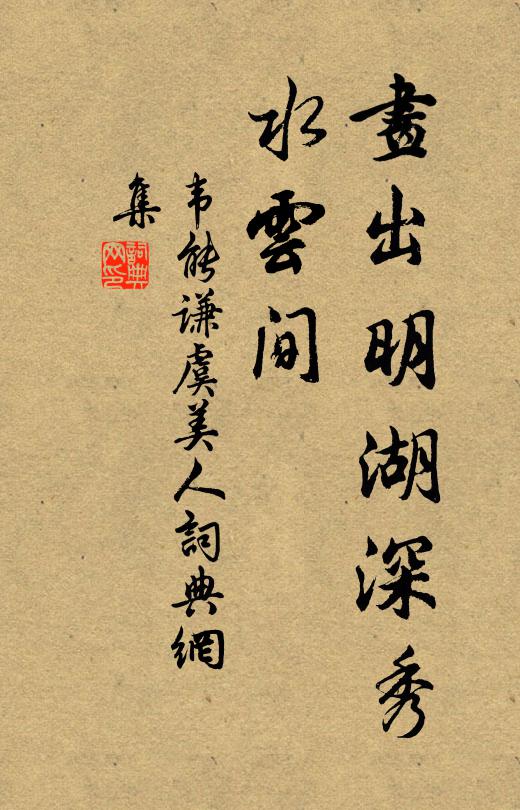 畫出明湖深秀
水雲間
韦能谦虞美人詞典網
集
詞典
网印